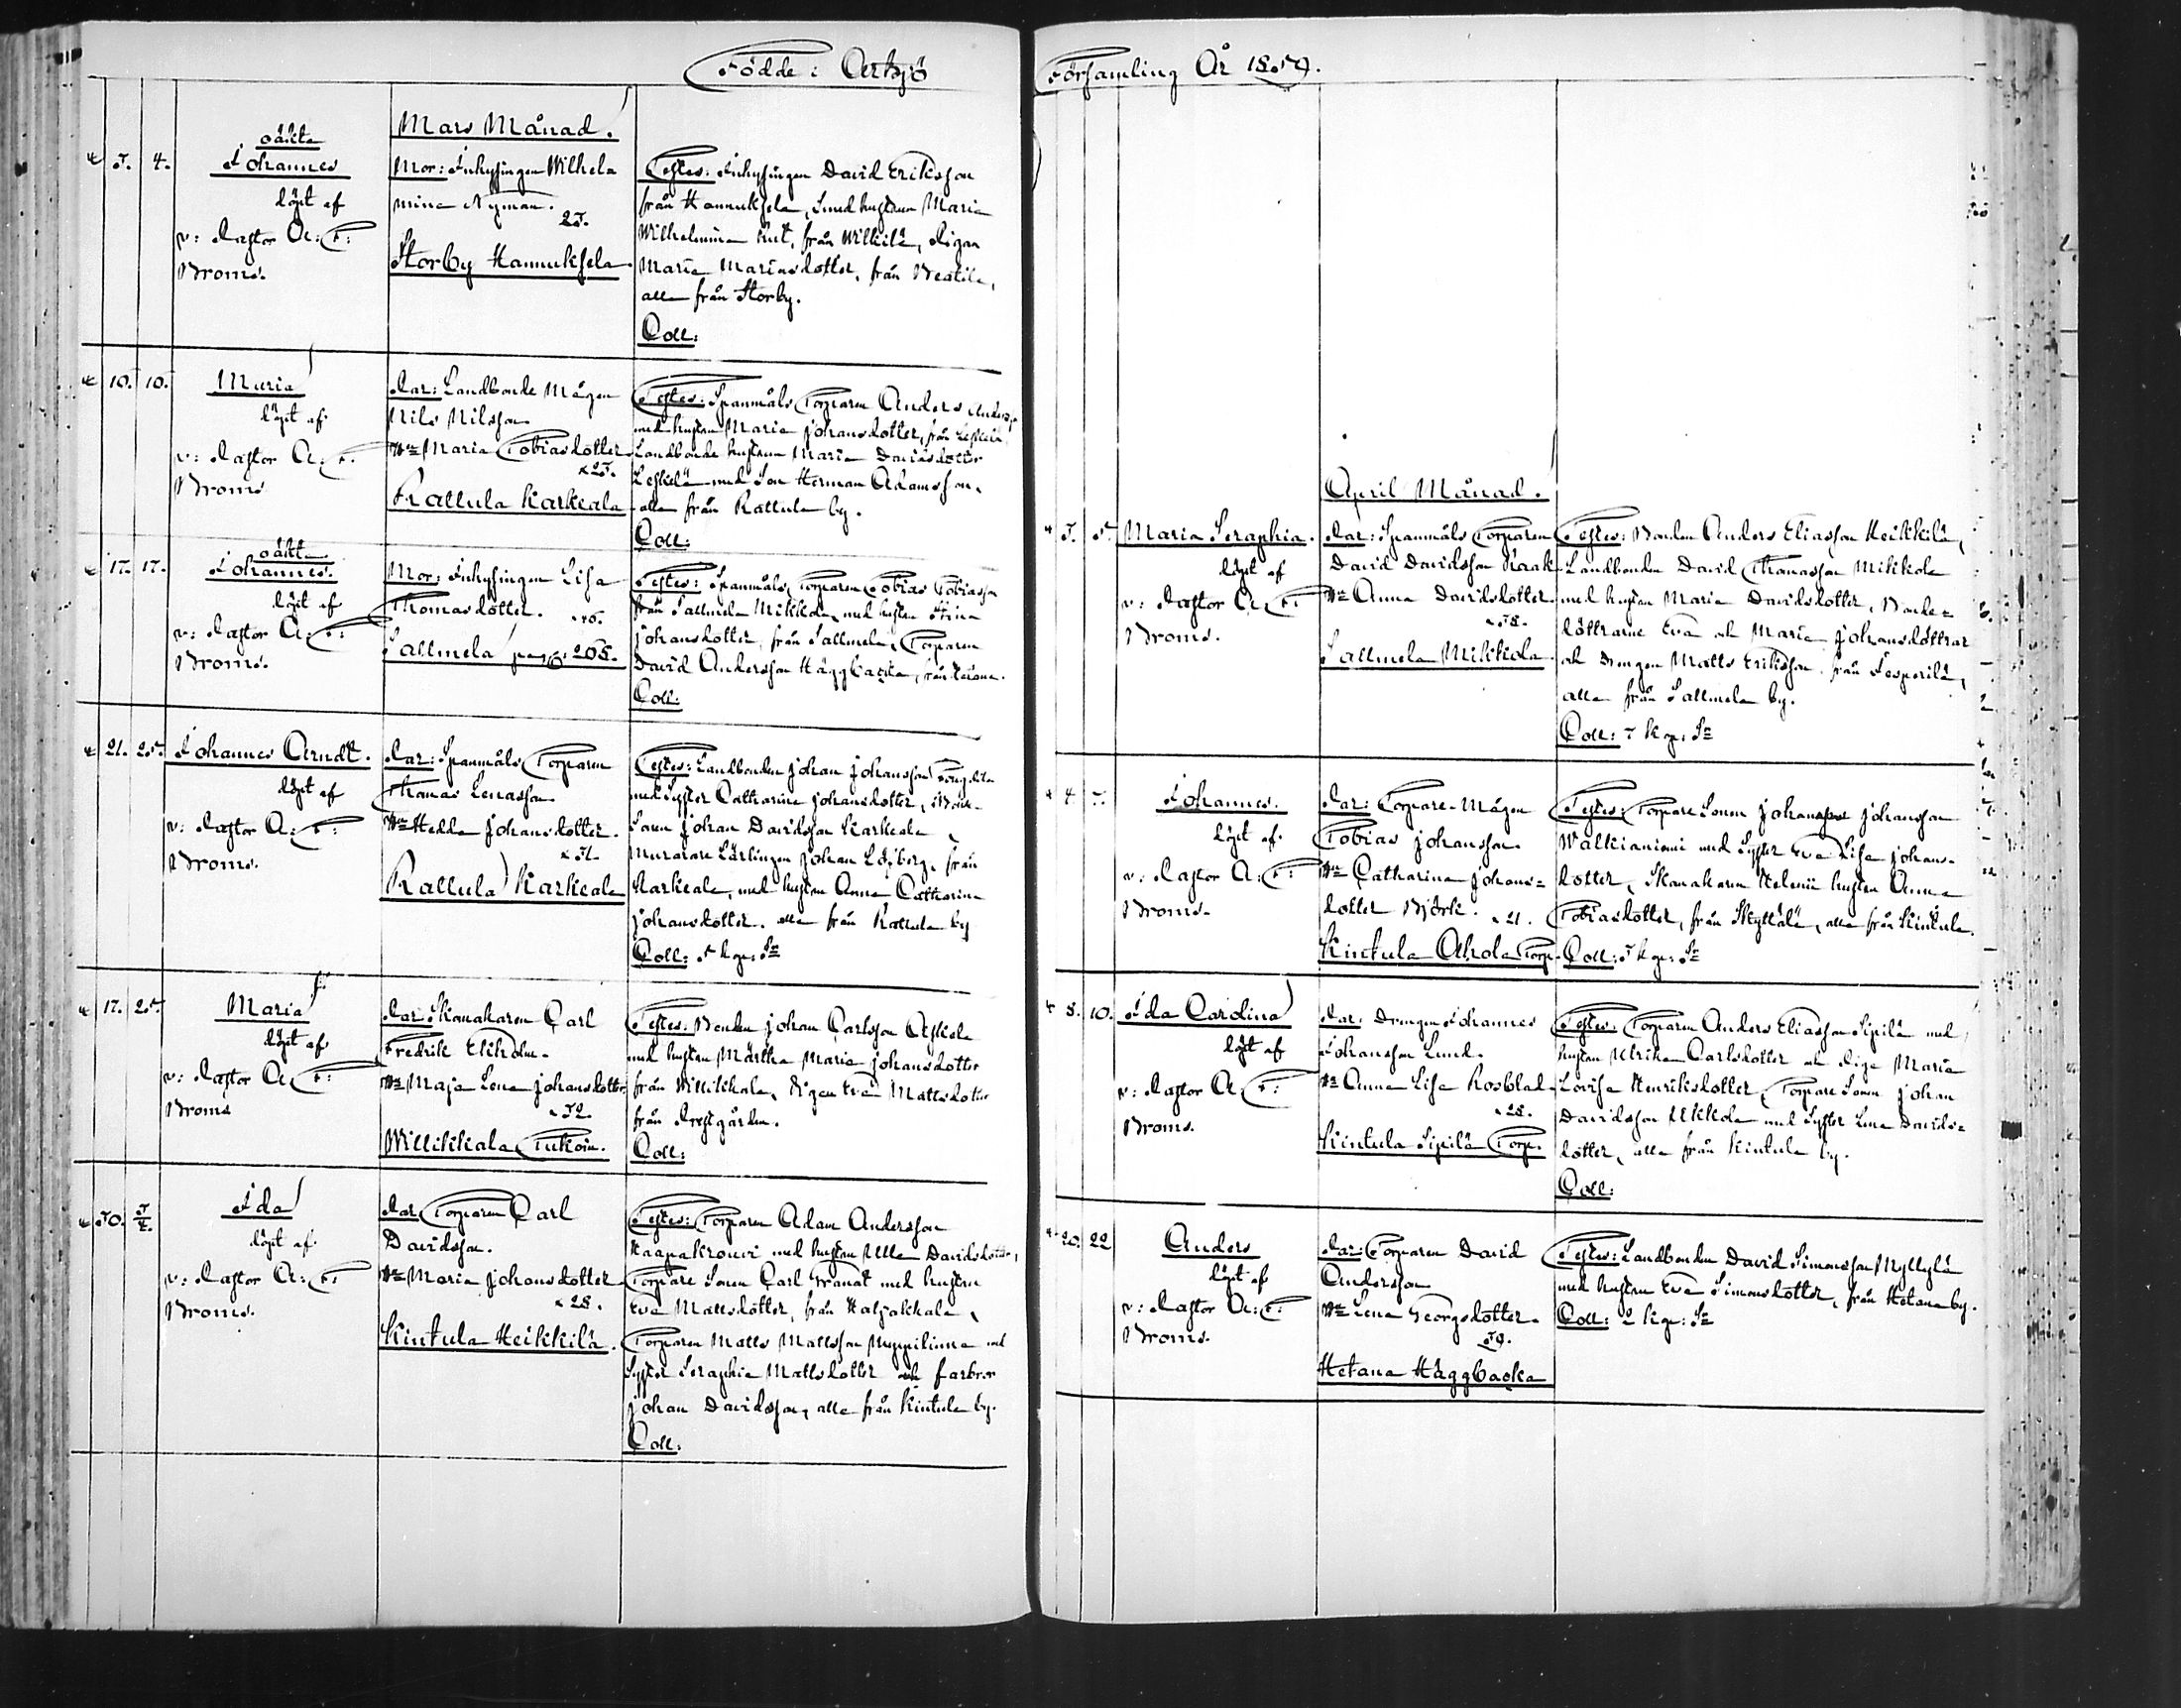 Födde i Artsjö
Mars Månad.
oäkta
3. 4. Johannes
döpt af
v: Pastor A: F:
Broms.
Mor: Inhysingen Wilhel-
mina Nyman.
23.
Storby Hannuksela
Testes: Inhysingen David Eriksson
från Hannuksela, Smed hustrun Maria
Wilhelmina från Wilkilä, Pigan
Maria Mariasdotter, från Beatila,
alla från Storby.
Coll:
10. 10. Maria
döpt af
v: Pastor A: F:
Broms
Par: Landbonde Mågen
Nils Nilsson
Hu Maria Tobiasdotter
x 23.
Rattula Karkeala
Testes: Spanmåls Torparen Anders
med hustrun Maria Johansdotter, från Leskelä
Landbonde hustrun Maria Davidsdotter
Leskelä med Son Herman Adamsson,
alla från Rattula by.
Coll:
oäkta
17. 17. Johannes.
döpt af
v: Pastor A: F:
Broms.
Mor: Inhysingen Lisa
Thomasdotter.
Salmela pag: 205.
Testes: Spanmåls Torparen Tobias Tobiasson
från Sallmela Mikkola, med hustrun Stina
Johansdotter, från Sallmela, Torparen
David Andersson Häggbacka, från Hetana.
Coll:
21. 25. Johannes Arndt.
döpt af
v: Pastor A: F:
Broms.
Par: Spanmåls Torparen
Thomas Lenasson
Hu Hedda Johansdotter.
Rattula Karkeala
Testes: Landbonden Johan Johansson
med Syster Catharina Johansdotter, Bonde-
Sonen Johan Davidsson Karkeala
Murarare Lärlingen Johan Löfberg, från
Karkeala, med hustrun Anna Catharina
Johansdotter. alla från Rattula by
Coll: 5 kop: Sr
17. 25. Maria
döpt af
v: Pastor A: F:
Broms
Par: Skomakaren Carl
Fredrik Ekholm.
Hu Maja Lena Johansdotter
x 32.
Willikkala
Testes: Bonden Johan Carlsson Askola
med hustrun Märtha Maria Johansdotter
från Willikkala, Pigan Eva Mattsdotter
från Prestgården.
Coll:
30. 3/4. Ida
döpt af
v: Pastor A: F:
Broms.
Par: Torparen Carl
Davidsson.
Hu Maria Johansdotter
x 28.
Kinttula Heikkilä.
Testes: Torparen Adam Andersson
Haapakrouvi med hustrun Ulla Davidsdotter,
Torpare Sonen Carl Granat med hustrun
Eva Mattsdotter, från
Torparen Matts Mattsson med
Syster Seraphia Mattsdotter och farbror
Johan Davidsson, alla från Kinttula by.
Coll:
Församling År 1859.
April Månad.
3. 5. Maria Seraphia.
döpt af
v: Pastor A: F:
Broms.
Par: Spanmåls Torparen
David Davidsson Raak
Hu Anna Davidsdotter
x 38.
Sallmela Mikkola
Testes: Bonden Anders Eliasson Heikkilä,
Landbonden David Thomasson Mikkola
med hustrun Maria Davidsdotter, Bonde-
döttrarne Eva och Maria Johansdöttrar
och Drengen Matts Eriksson från Jesperilä,
alla från Sallmela by.
Coll: 7 kop: Sr
4. 7. Johannes.
döpt af
v: Pastor A: F:
Broms.
Par: Torpare-Mågen
Tobias Johansson.
Hu Catharina Johans-
dotter Björk. x 21.
Kinttula Ahola Torp.
Testes: Torpare Sonen Johan Johansson
med Syster Eva Lisa Johans-
dotter, Skomakaren Helenii hustrun Anna
Tobiasdotter, från Skyttälä, alla från Kinttula.
Coll: 3 kop: Sr
8. 10. Ida Carolina
döpt af
v: Pastor A: F:
Broms.
Par: Drengen Johannes
Johansson Lund.
Hu Anna Lisa Rosblad
x 28.
Kinttula Sipilä Torp.
Testes: Torparen Anders Eliasson Sipilä med
hustrun Ulrika Carlsdotter och Piga Maria
Lovisa Henriksdotter, Torpare Sonen Johan
Davidsson Ukkola med Syster Lena Davids-
dotter, alla från Kinttula by.
Coll:
20. 22 Anders
döpt af
v: Pastor A: F:
Broms.
Par: Torparen David
Andersson
Hu Lena Georgsdotter.
39.
Hetana Häggbacka
Testes: Landbonden David Simonsson Myllylä
med hustrun Eva Simonsdotter, från Hetana by.
Coll: 2 kop: Sr